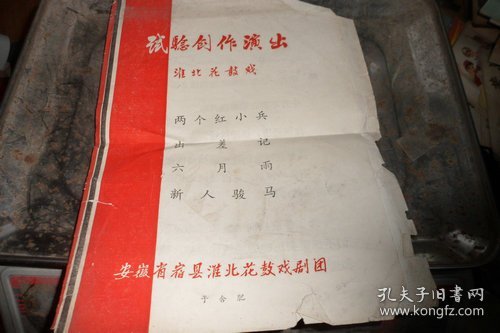 试验创作演出
淮北花鼓戏
两个红小兵
出差记
六月雨
新人骏马
安徽省宿县淮北花鼓戏剧团
于合肥
孔夫子旧书网
www.kongfz.com